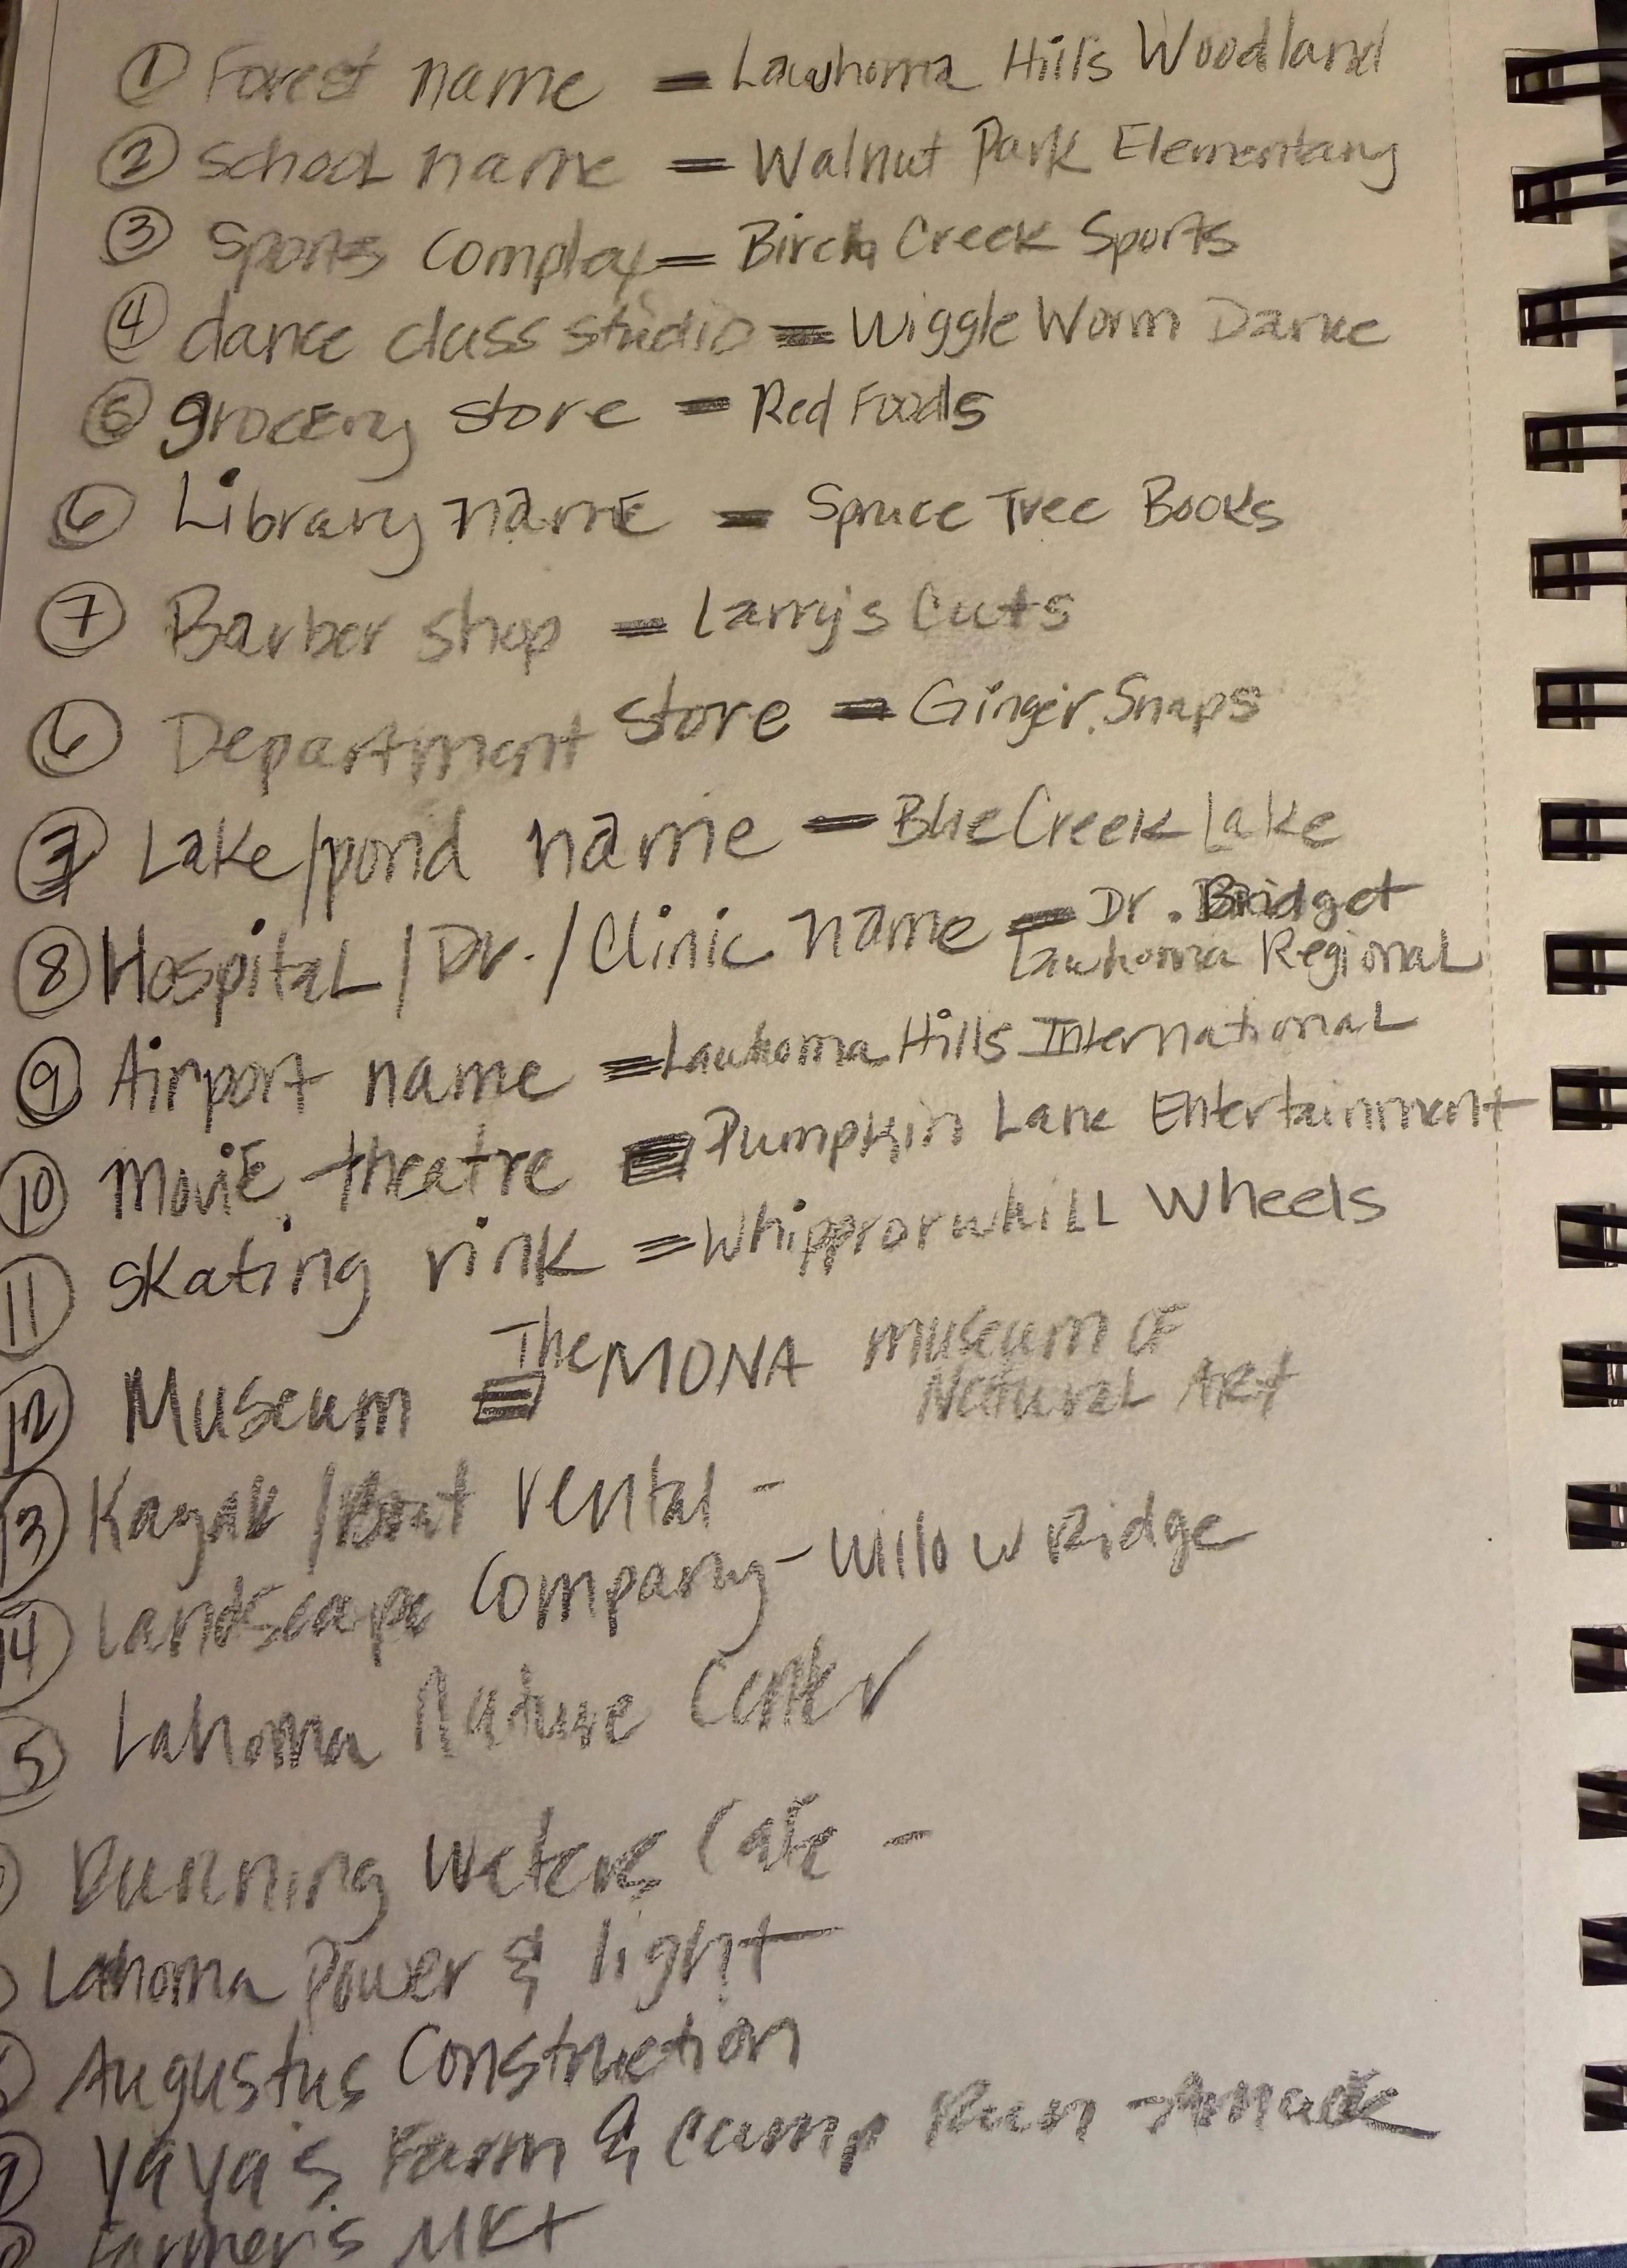 ① Forest name = Lawhoma Hills Woodland
② School name = Walnut Park Elementary
③ Sports Complex = Birch Creek Sports
④ dance class studio = Wiggle Worm Dance
⑤ grocery store = Red Foods
⑥ Library name = Spruce Tree Books
⑦ Barber shop = Larry's Cuts
⑥ Department store = Ginger Snaps
⑦ Lake/pond name = Blue Creek Lake
⑧ Hospital / Dr. / Clinic name = Dr. Bridget
Lawhoma Regional
⑨ Airport name = Lawhoma Hills International
⑩ Movie theatre = Pumpkin Lane Entertainment
⑪ Skating rink = Whipprorwhill Wheels
⑫ Museum = The MONA museum OF
Natural ART
⑬ Kayak / Boat rental -
⑭ Landscape Company - Willow Ridge
5 Lahoma Nature Center
Running Waters Cafe -
Lahoma Power & light
Augustus Construction
YaYa's Farm & Camp Run
Farmer's MKt